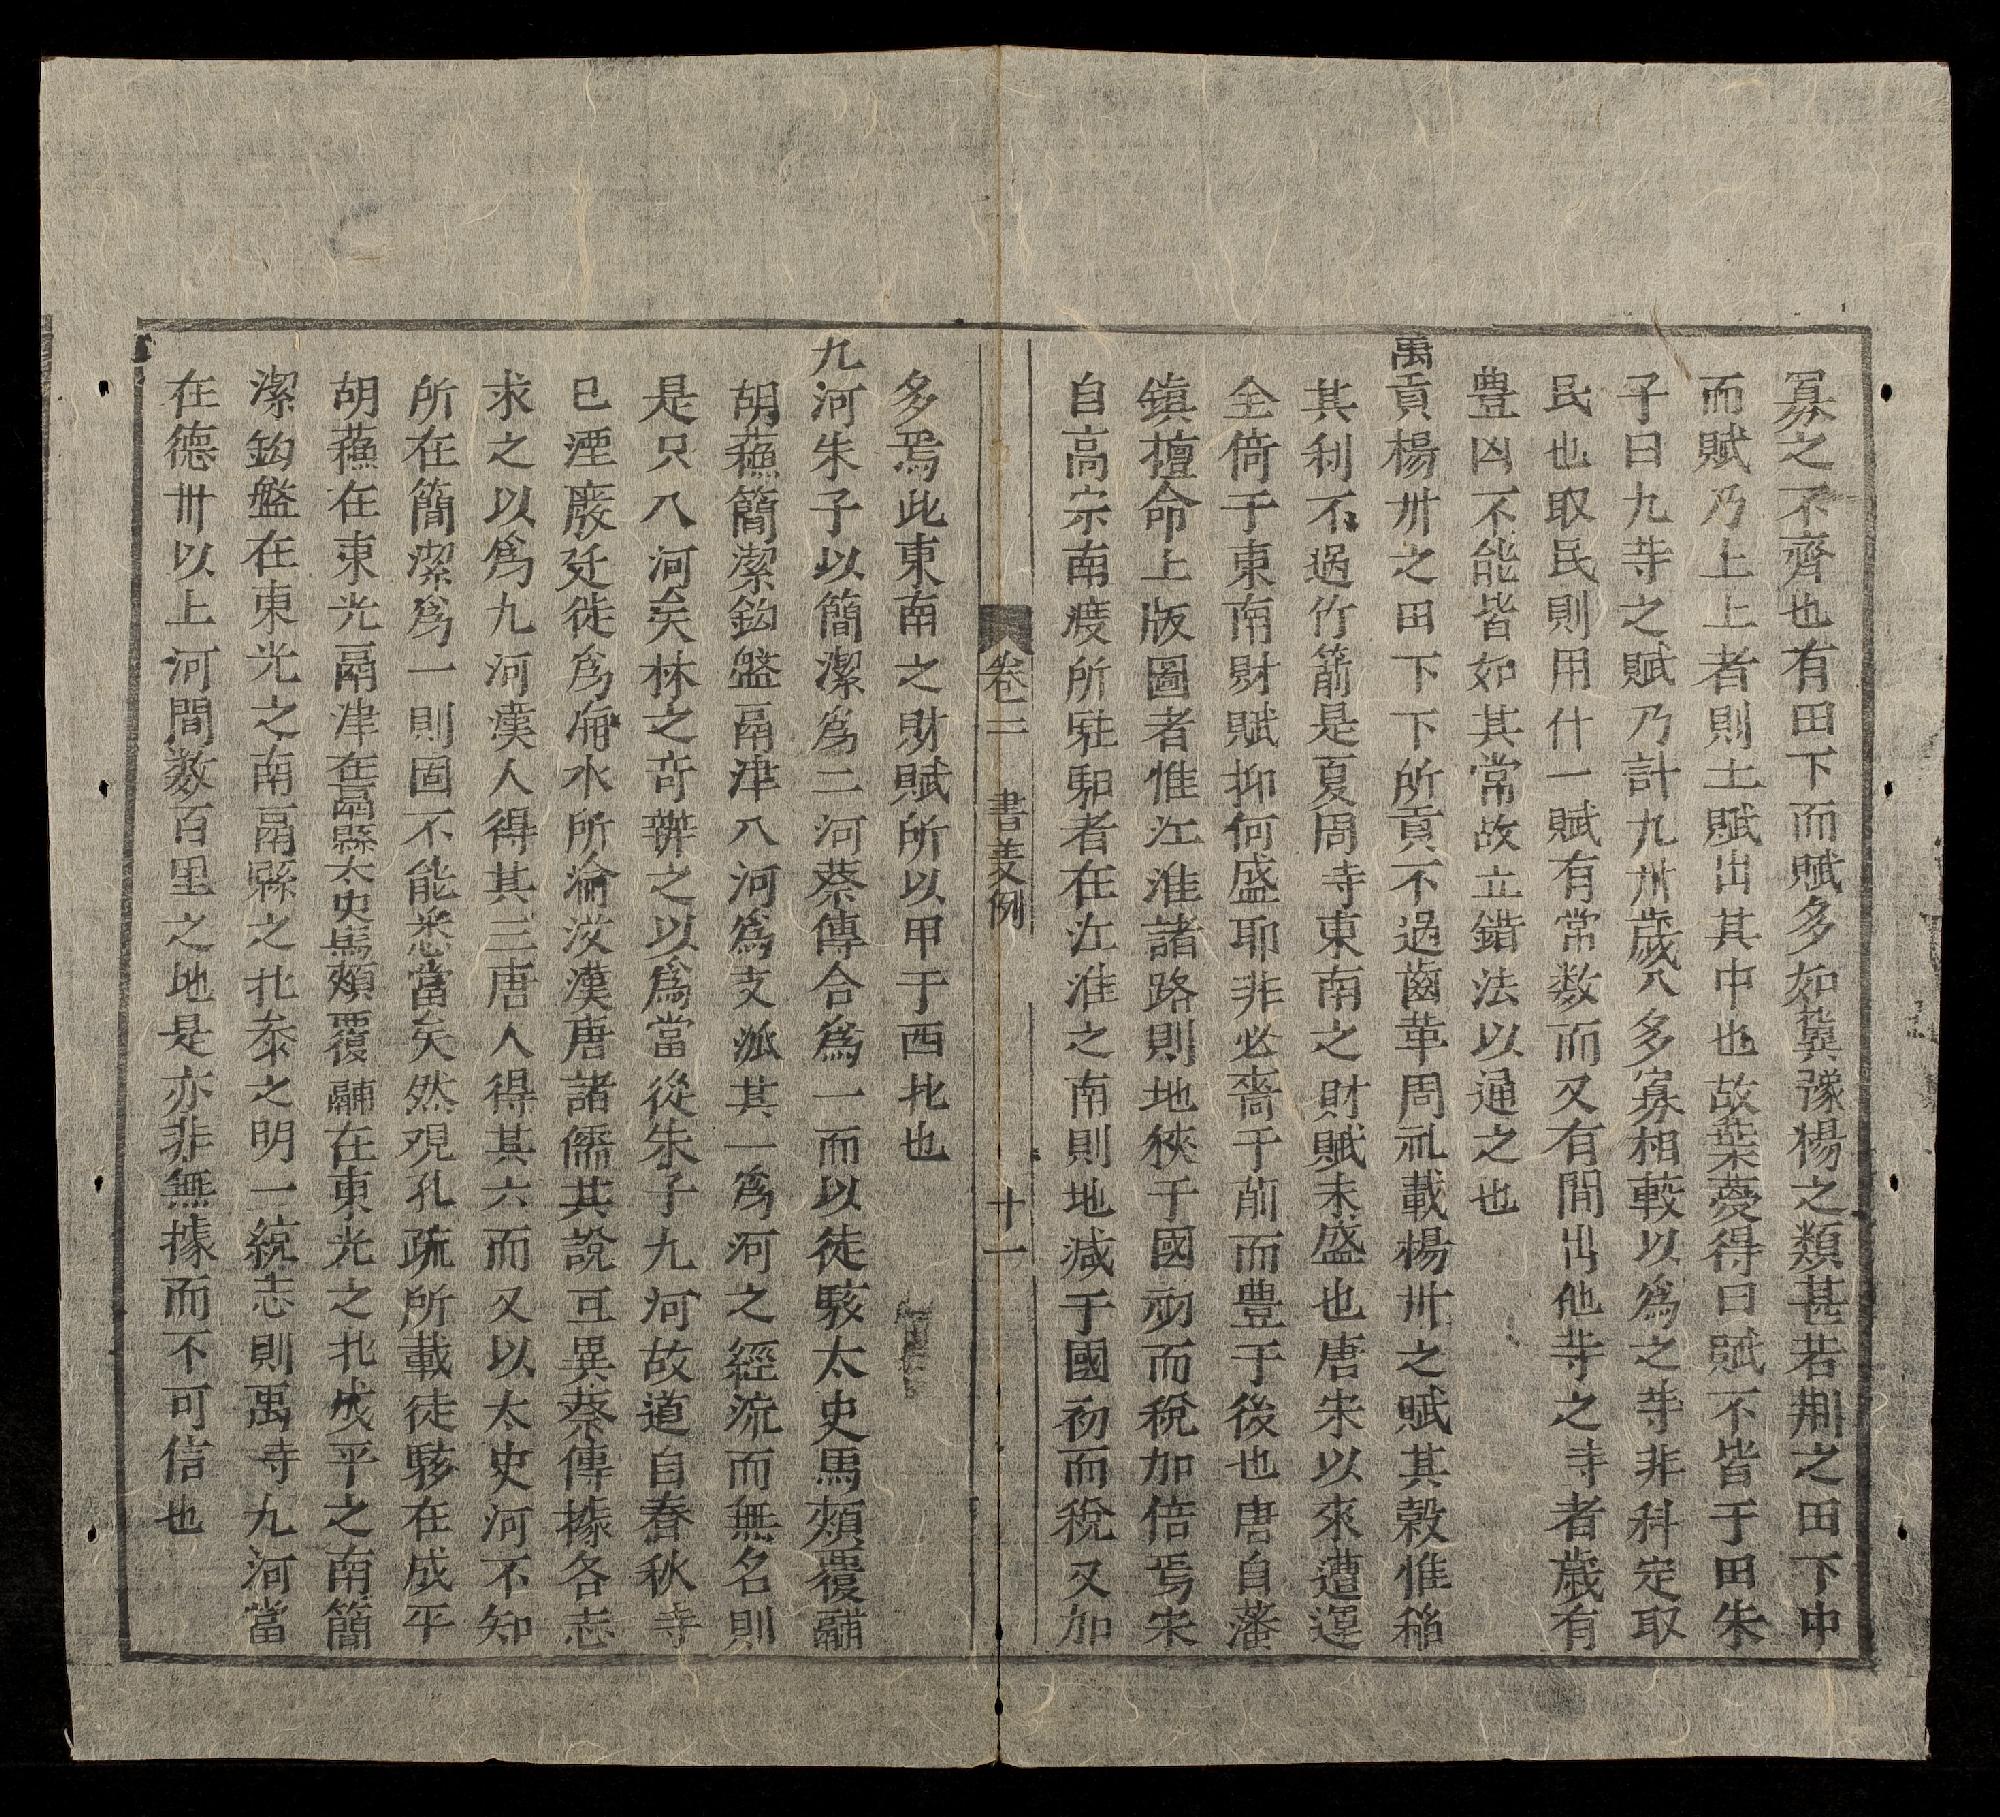 寡之不齊也有田下而賦多如冀豫楊之類甚若荆之田下中
而賦乃上上者則土賦出其中也故葉薆得曰賦不皆于田朱
子曰九寺之賦乃計九州歲入多寡相較以爲之寺非科定取
民也取民則用什一賦有常数而又有間出他寺之寺者歲有
豊凶不能皆如其常故立錯法以通之也
禹貢楊州之田下下所貢不過齒革周礼載楊州之賦其榖惟稻
其利不過竹箭是夏周寺東南之財賦未盛也唐宋以來遭運
全倚于東南財賦抑何盛耶非必嗇于前而豊于後也唐自藩
鎮擅命上版圖者惟江淮諸路則地狹于國初而稅加倍焉宋
自高宗南渡所駐䭾者在江淮之南則地减于國初而稅又加
卷二 書義例 十一
多焉此東南之財賦所以甲于西北也
九河朱子以簡潔爲二河蔡傳合爲一而以徒駭太史馬頰覆鬴
胡蘓簡潔鈎盤鬲津八河爲支派其一爲河之經流而無名則
是只八河矣林之奇辨之以爲當從朱子九河故道自春秋寺
已湮廢迁徙爲海水所淪沒漢唐諸儒其說互異蔡傳據各志
求之以爲九河漢人得其三唐人得其六而又以太史河不知
所在簡潔爲一則固不能悉當矣然观孔疏所載徒駭在成平
胡蘓在東光鬲津在鬲縣太史馬頰覆鬴在東光之北成平之南簡
潔鈎盤在東光之南鬲縣之北泰之明一統志則禹寺九河當
在德州以上河間数百里之地是亦非無據而不可信也